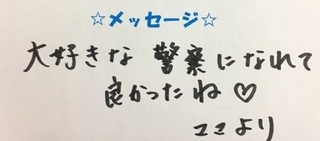 ☆メッセージ☆
大好きな警察になれて
良かったね♡
ココより